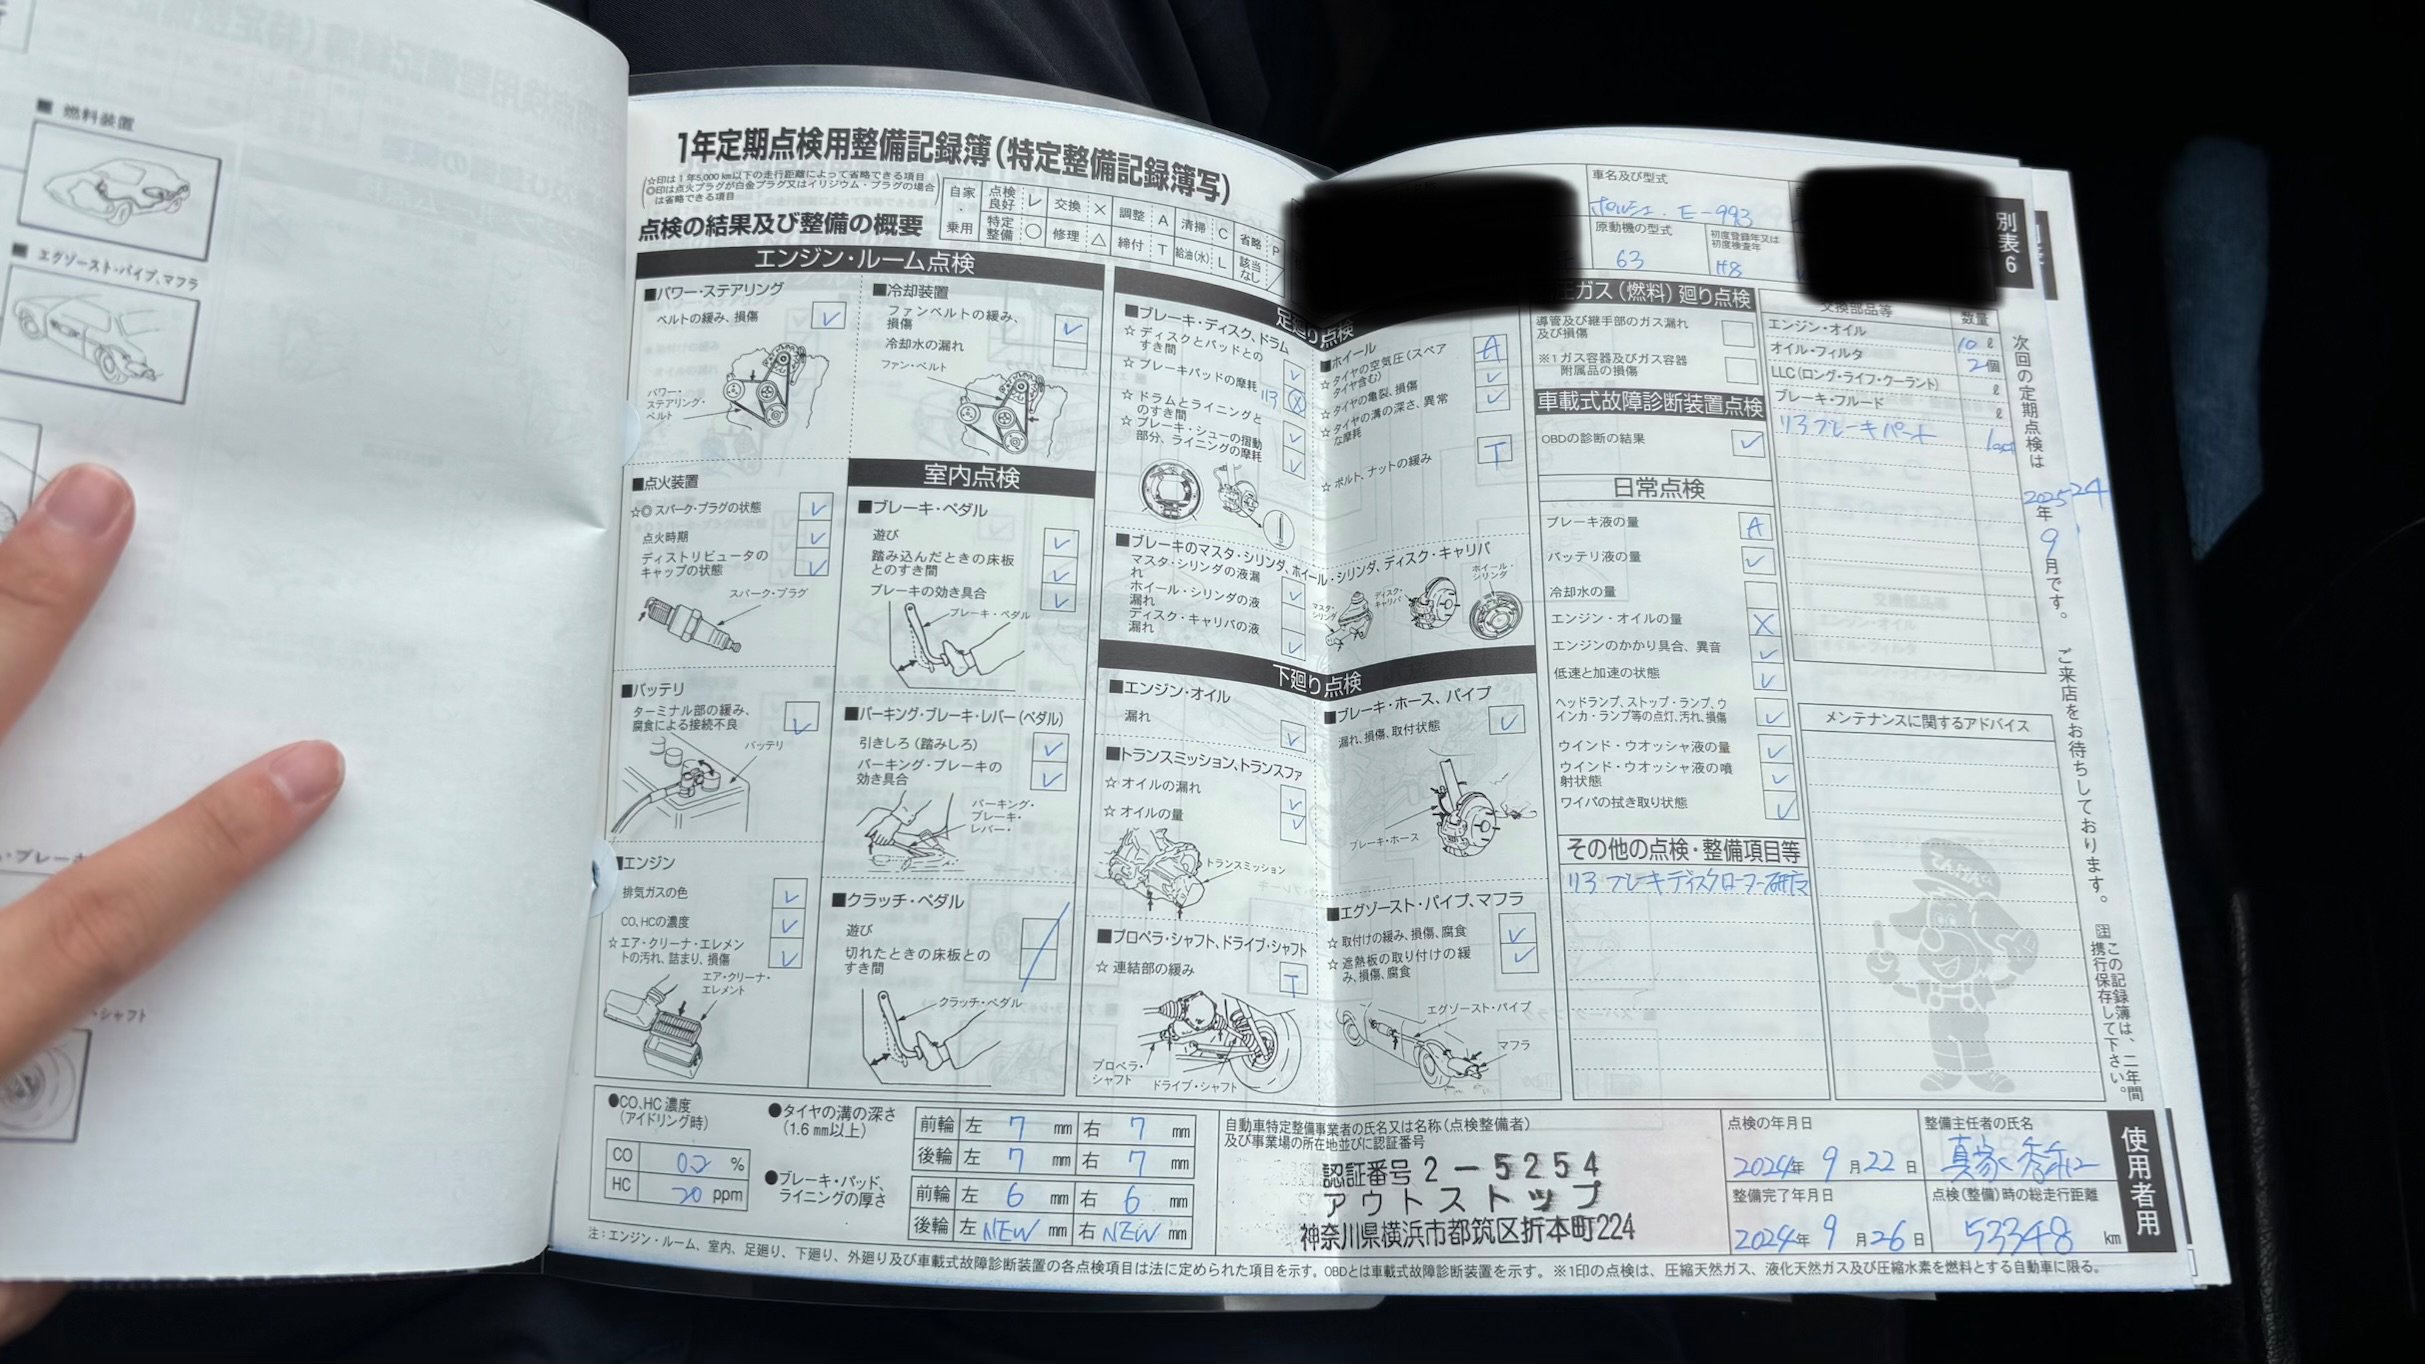 ■ 燃料装置
■ エグゾースト・パイプ、マフラ
1年定期点検用整備記録簿(特定整備記録簿写)
☆印は1年5,000km以下の走行距離によって省略できる項目
◎印は点火プラグが白金プラグ又はイリジウム・プラグの場合
は省略できる項目
点検の結果及び整備の概要
自家・乗用
点検良好 レ 交換 × 調整 A 清掃 C 省略 P
特定整備 ○ 修理 △ 締付 T 給油(水) L 該当なし
車名及び型式
ポルシェ. E-993
原動機の型式
63
初度登録年又は
初度検査年
H8
別表6
エンジン・ルーム点検
■パワー・ステアリング
ベルトの緩み、損傷 レ
パワー・
ステアリング・
ベルト
■冷却装置
ファンベルトの緩み、
損傷 レ
冷却水の漏れ
ファン・ベルト
■点火装置
☆◎スパーク・プラグの状態 レ
点火時期 レ
ディストリビュータの
キャップの状態 レ
スパーク・プラグ
■バッテリ
ターミナル部の緩み、
腐食による接続不良 レ
バッテリ
■エンジン
排気ガスの色 レ
CO、HCの濃度 レ
☆エア・クリーナ・エレメン
トの汚れ、詰まり、損傷 レ
エア・クリーナ・
エレメント
室内点検
■ブレーキ・ペダル
遊び レ
踏み込んだときの床板
とのすき間 レ
ブレーキの効き具合 レ
ブレーキ・ペダル
■パーキング・ブレーキ・レバー(ペダル)
引きしろ(踏みしろ) レ
パーキング・ブレーキの
効き具合 レ
パーキング・
ブレーキ・
レバー・
■クラッチ・ペダル
遊び
切れたときの床板との
すき間
クラッチ・ペダル
足廻り点検
■ブレーキ・ディスク、ドラム
☆ディスクとパッドとの
すき間 レ
☆ブレーキパッドの摩耗 リヤ ×
☆ドラムとライニングと
のすき間 レ
☆ブレーキ・シューの摺動
部分、ライニングの摩耗 レ
■ホイール
☆タイヤの空気圧(スペア
タイヤ含む) A
☆タイヤの亀裂、損傷 レ
☆タイヤの溝の深さ、異常
な摩耗 レ
☆ボルト、ナットの緩み T
■ブレーキのマスタ・シリンダ、ホイール・シリンダ、ディスク・キャリパ
マスタ・シリンダの液漏
れ レ
ホイール・シリンダの液
漏れ
ディスク・キャリパの液
漏れ レ
マスタ・
シリンダ
ディスク・
キャリパ
ホイール・
シリンダ
下廻り点検
■エンジン・オイル
漏れ レ
■トランスミッション、トランスファ
☆オイルの漏れ レ
☆オイルの量 レ
トランスミッション
■プロペラ・シャフト、ドライブ・シャフト
☆連結部の緩み T
プロペラ・
シャフト
ドライブ・シャフト
■ブレーキ・ホース、パイプ
漏れ、損傷、取付状態 レ
ブレーキ・ホース
■エグゾースト・パイプ、マフラ
☆取付けの緩み、損傷、腐食 レ
☆遮熱板の取り付けの緩
み、損傷、腐食 レ
エグゾースト・パイプ
マフラ
圧ガス(燃料)廻り点検
導管及び継手部のガス漏れ
及び損傷
※1ガス容器及びガス容器
附属品の損傷
車載式故障診断装置点検
OBDの診断の結果 レ
日常点検
ブレーキ液の量 A
バッテリ液の量 レ
冷却水の量
エンジン・オイルの量 X
エンジンのかかり具合、異音 レ
低速と加速の状態 レ
ヘッドランプ、ストップ・ランプ、ウ
インカ・ランプ等の点灯、汚れ、損傷 レ
ウインド・ウオッシャ液の量 レ
ウインド・ウオッシャ液の噴
射状態 レ
ワイパの拭き取り状態 レ
その他の点検・整備項目等
リヤ ブレーキディスクローター研磨
交換部品等 数量
エンジン・オイル 10 ℓ
オイル・フィルタ 2 個
LLC(ロング・ライフ・クーラント) ℓ
ブレーキ・フルード ℓ
リヤブレーキパッド 1set
メンテナンスに関するアドバイス
次回の定期点検は 2025 年 9 月です。 ご来店をお待ちしております。
注 この記録簿は、二年間
携行保存して下さい。
●CO、HC濃度
(アイドリング時)
CO 0.2 %
HC 20 ppm
●タイヤの溝の深さ
(1.6mm以上)
前輪 左 7 mm 右 7 mm
後輪 左 7 mm 右 7 mm
●ブレーキ・パッド、
ライニングの厚さ
前輪 左 6 mm 右 6 mm
後輪 左 NEW mm 右 NEW mm
自動車特定整備事業者の氏名又は名称(点検整備者)
及び事業場の所在地並びに認証番号
認証番号 2-5254
アウトストップ
神奈川県横浜市都筑区折本町224
点検の年月日
2024年 9月22日
整備完了年月日
2024年 9月26日
整備主任者の氏名
点検(整備)時の総走行距離
53348 km
使用者用
注:エンジン・ルーム、室内、足廻り、下廻り、外廻り及び車載式故障診断装置の各点検項目は法に定められた項目を示す。OBDとは車載式故障診断装置を示す。※1印の点検は、圧縮天然ガス、液化天然ガス及び圧縮水素を燃料とする自動車に限る。